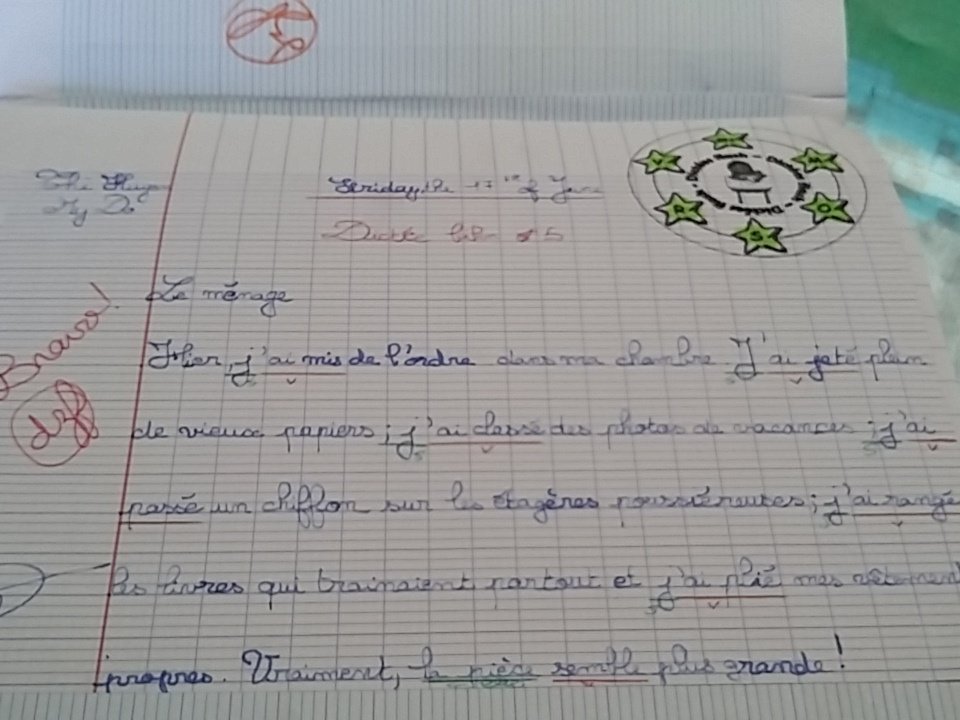 My
the 17
Dictée bilan n°5
Le ménage
Bravo!
Hier, j'ai mis de l'ordre dans ma chambre. J'ai jeté plein
de vieux papiers; j'ai classé des photos de vacances; j'ai
passé un chiffon sur les étagères poussiéreuses; j'ai rangé
les livres qui trainaient partout et j'ai plié mes vêtements
propres. Vraiment, la pièce semble plus grande!